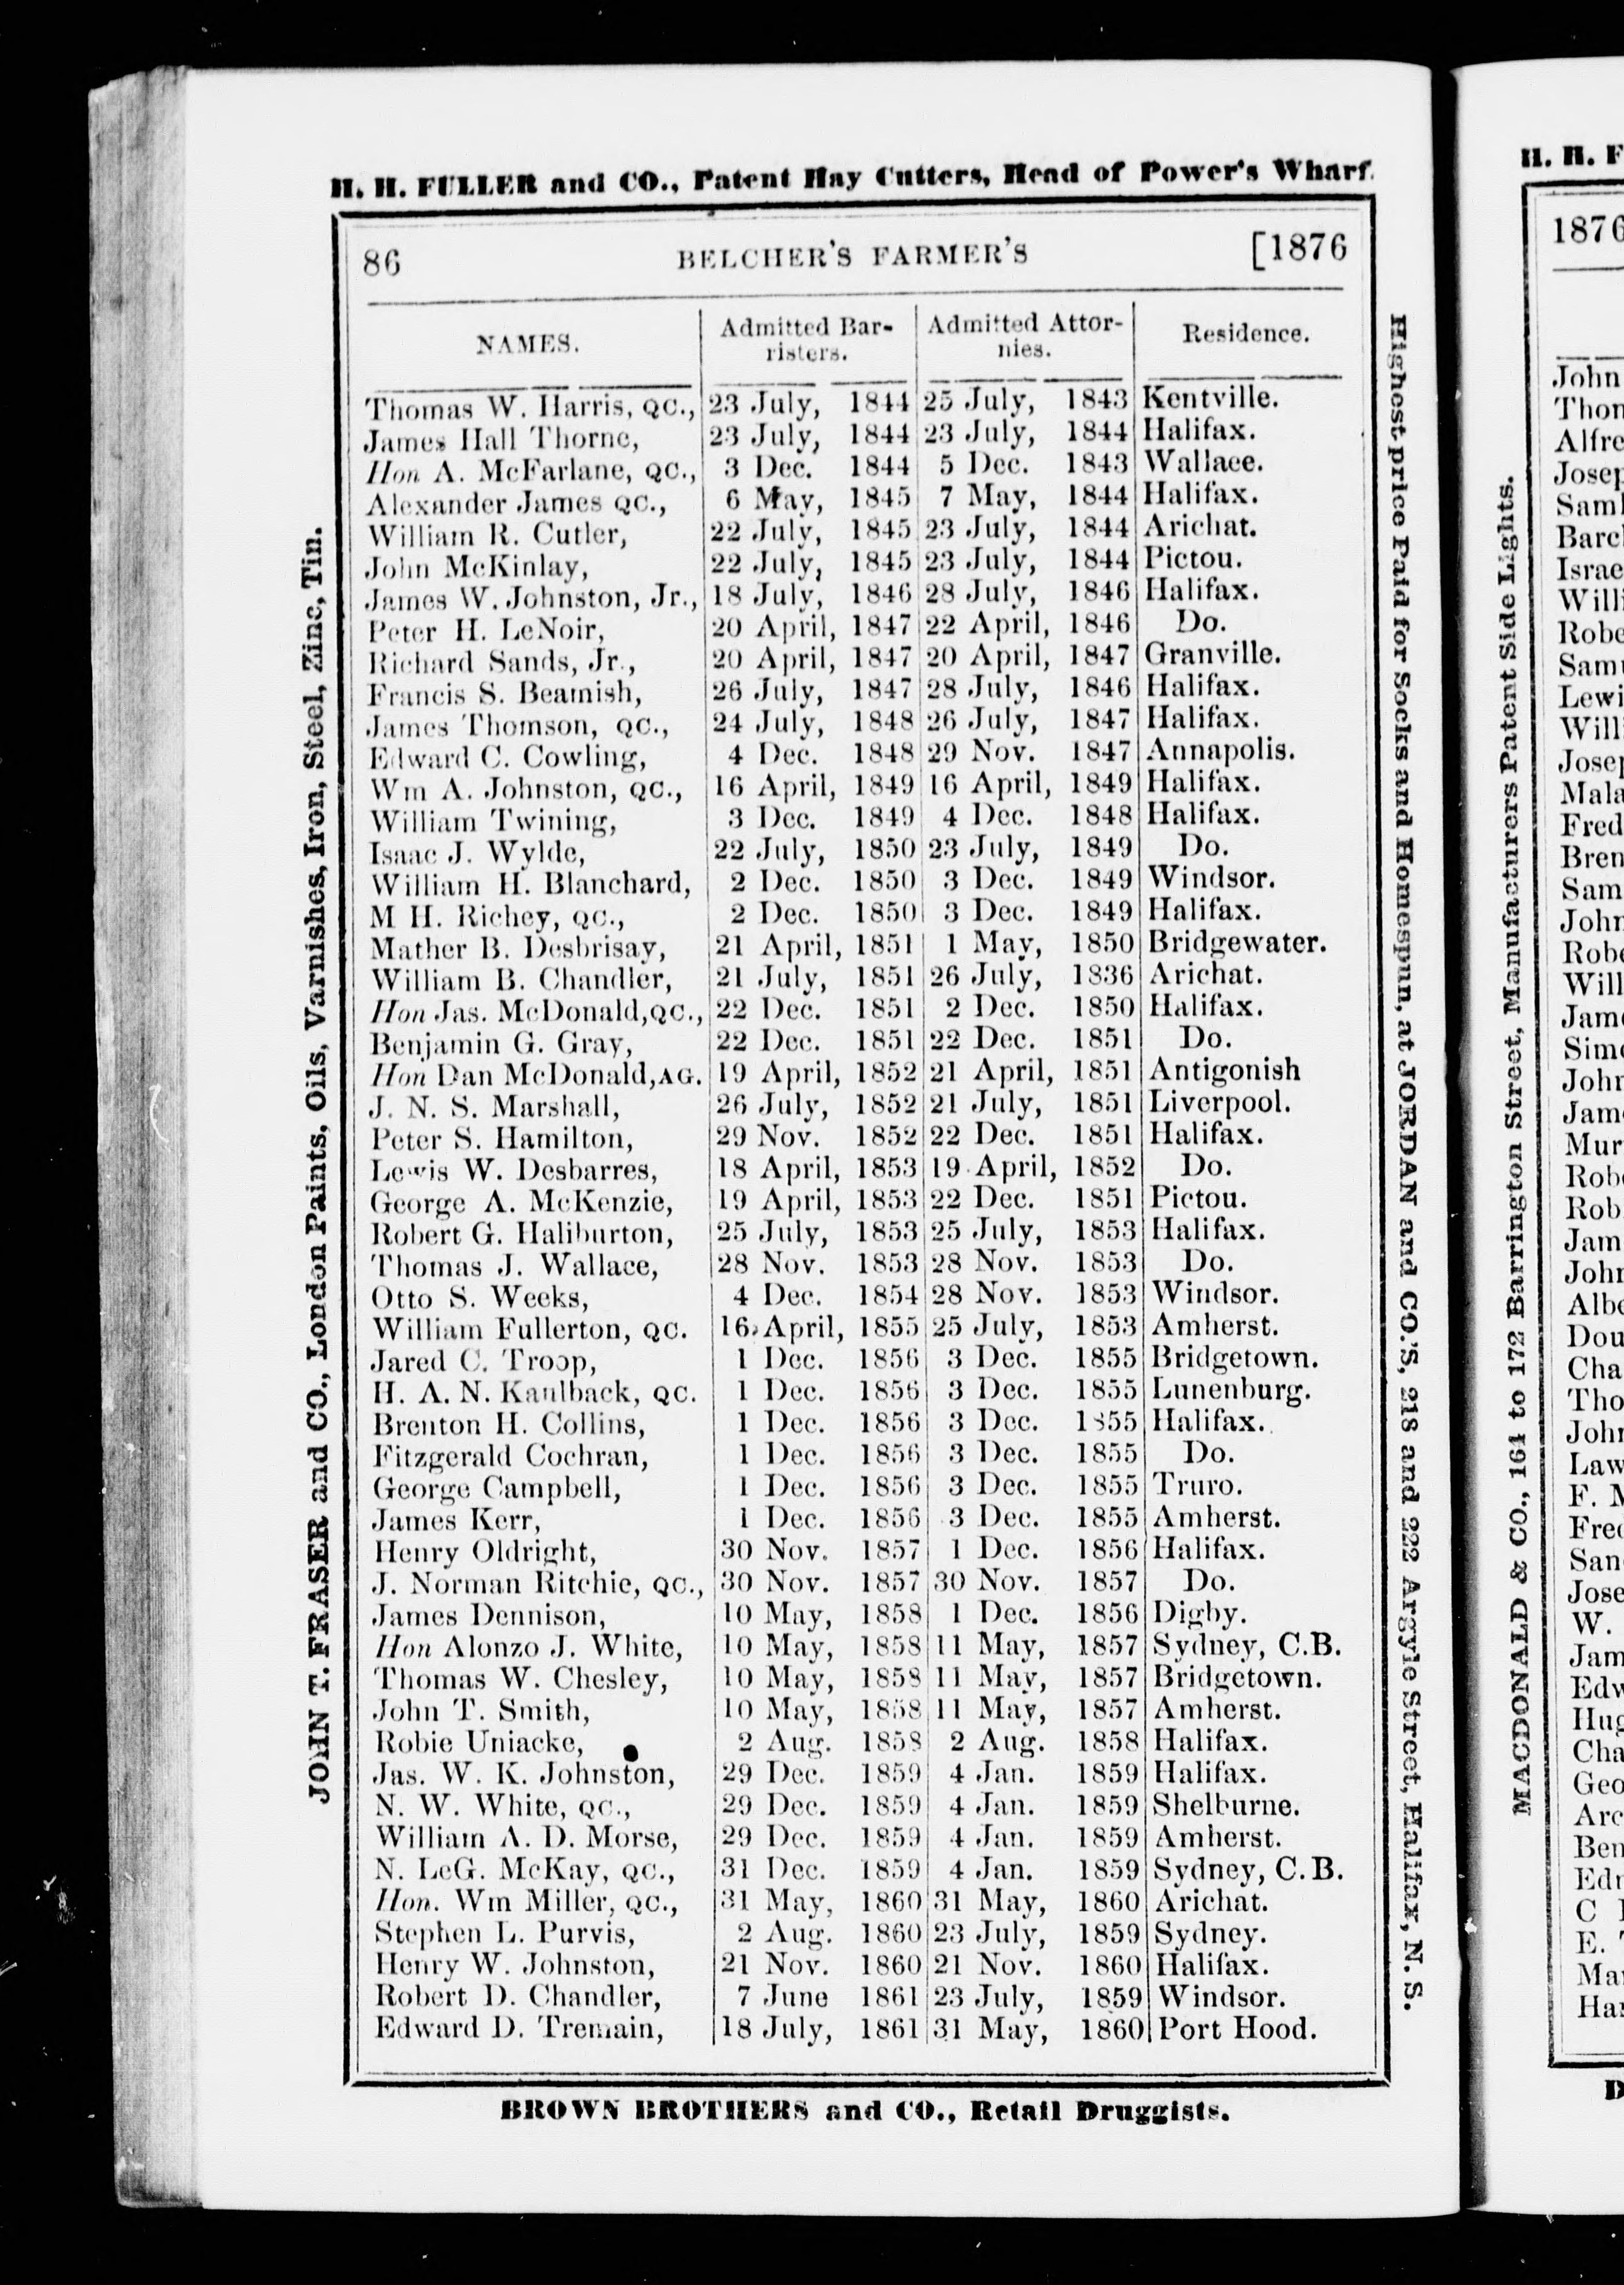 H. H. FULLER and CO., Patent Hay Cutters, Head of Power's Wharf.
86 BELCHER'S FARMER'S [1876
NAMES. Admitted Barristers. Admitted Attornies. Residence.
Thomas W. Harris, QC., 23 July, 1844 25 July, 1843 Kentville.
James Hall Thorne, 23 July, 1844 23 July, 1844 Halifax.
Hon A. McFarlane, QC., 3 Dec. 1844 5 Dec. 1843 Wallace.
Alexander James QC., 6 May, 1845 7 May, 1844 Halifax.
William R. Cutler, 22 July, 1845 23 July, 1844 Arichat.
John McKinlay, 22 July, 1845 23 July, 1844 Pictou.
James W. Johnston, Jr., 18 July, 1846 28 July, 1846 Halifax.
Peter H. LeNoir, 20 April, 1847 22 April, 1846 Do.
Richard Sands, Jr., 20 April, 1847 20 April, 1847 Granville.
Francis S. Beamish, 26 July, 1847 28 July, 1846 Halifax.
James Thomson, QC., 24 July, 1848 26 July, 1847 Halifax.
Edward C. Cowling, 4 Dec. 1848 29 Nov. 1847 Annapolis.
Wm A. Johnston, QC., 16 April, 1849 16 April, 1849 Halifax.
William Twining, 3 Dec. 1849 4 Dec. 1848 Halifax.
Isaac J. Wylde, 22 July, 1850 23 July, 1849 Do.
William H. Blanchard, 2 Dec. 1850 3 Dec. 1849 Windsor.
M H. Richey, QC., 2 Dec. 1850 3 Dec. 1849 Halifax.
Mather B. Desbrisay, 21 April, 1851 1 May, 1850 Bridgewater.
William B. Chandler, 21 July, 1851 26 July, 1836 Arichat.
Hon Jas. McDonald, QC., 22 Dec. 1851 2 Dec. 1850 Halifax.
Benjamin G. Gray, 22 Dec. 1851 22 Dec. 1851 Do.
Hon Dan McDonald, AG. 19 April, 1852 21 April, 1851 Antigonish
J. N. S. Marshall, 26 July, 1852 21 July, 1851 Liverpool.
Peter S. Hamilton, 29 Nov. 1852 22 Dec. 1851 Halifax.
Lewis W. Desbarres, 18 April, 1853 19 April, 1852 Do.
George A. McKenzie, 19 April, 1853 22 Dec. 1851 Pictou.
Robert G. Haliburton, 25 July, 1853 25 July, 1853 Halifax.
Thomas J. Wallace, 28 Nov. 1853 28 Nov. 1853 Do.
Otto S. Weeks, 4 Dec. 1854 28 Nov. 1853 Windsor.
William Fullerton, QC. 16 April, 1855 25 July, 1853 Amherst.
Jared C. Troop, 1 Dec. 1856 3 Dec. 1855 Bridgetown.
H. A. N. Kaulback, QC. 1 Dec. 1856 3 Dec. 1855 Lunenburg.
Brenton H. Collins, 1 Dec. 1856 3 Dec. 1855 Halifax.
Fitzgerald Cochran, 1 Dec. 1856 3 Dec. 1855 Do.
George Campbell, 1 Dec. 1856 3 Dec. 1855 Truro.
James Kerr, 1 Dec. 1856 3 Dec. 1855 Amherst.
Henry Oldright, 30 Nov. 1857 1 Dec. 1856 Halifax.
J. Norman Ritchie, QC., 30 Nov. 1857 30 Nov. 1857 Do.
James Dennison, 10 May, 1858 1 Dec. 1856 Digby.
Hon Alonzo J. White, 10 May, 1858 11 May, 1857 Sydney, C.B.
Thomas W. Chesley, 10 May, 1858 11 May, 1857 Bridgetown.
John T. Smith, 10 May, 1858 11 May, 1857 Amherst.
Robie Uniacke, 2 Aug. 1858 2 Aug. 1858 Halifax.
Jas. W. K. Johnston, 29 Dec. 1859 4 Jan. 1859 Halifax.
N. W. White, QC., 29 Dec. 1859 4 Jan. 1859 Shelburne.
William A. D. Morse, 29 Dec. 1859 4 Jan. 1859 Amherst.
N. LeG. McKay, QC., 31 Dec. 1859 4 Jan. 1859 Sydney, C.B.
Hon. Wm Miller, QC., 31 May, 1860 31 May, 1860 Arichat.
Stephen L. Purvis, 2 Aug. 1860 23 July, 1859 Sydney.
Henry W. Johnston, 21 Nov. 1860 21 Nov. 1860 Halifax.
Robert D. Chandler, 7 June 1861 23 July, 1859 Windsor.
Edward D. Tremain, 18 July, 1861 31 May, 1860 Port Hood.
BROWN BROTHERS and CO., Retail Druggists.
JOHN T. FRASER and CO., London Paints, Oils, Varnishes, Iron, Steel, Zinc, Tin.
Highest price Paid for Socks and Homespun, at JORDAN and CO.'S, 218 and 222 Argyle Street, Halifax, N. S.
MACDONALD & CO., 164 to 172 Barrington Street, Manufacturers Patent Side Lights.
H. H.
1876
John